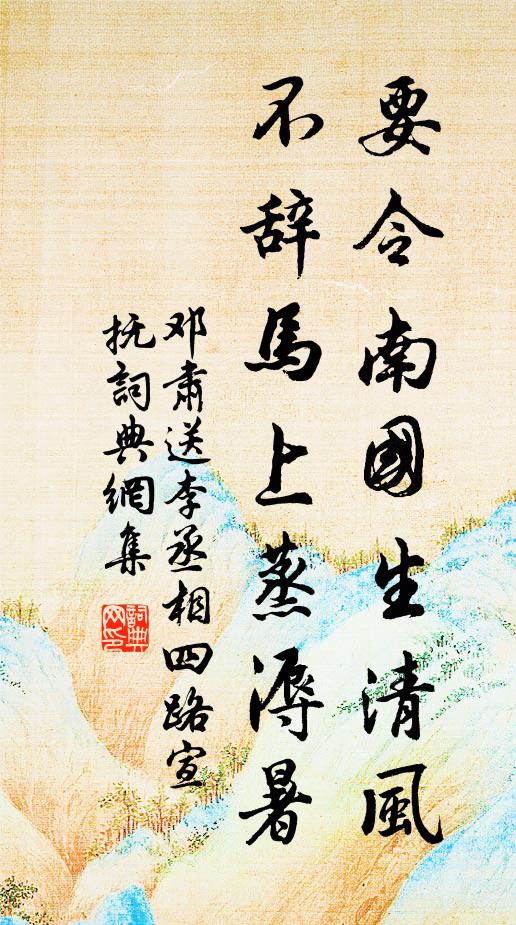 要令南國生清風
不辞馬上蒸溽暑
邓肅送李丞相四路宣
抚詞典網集
詞典网